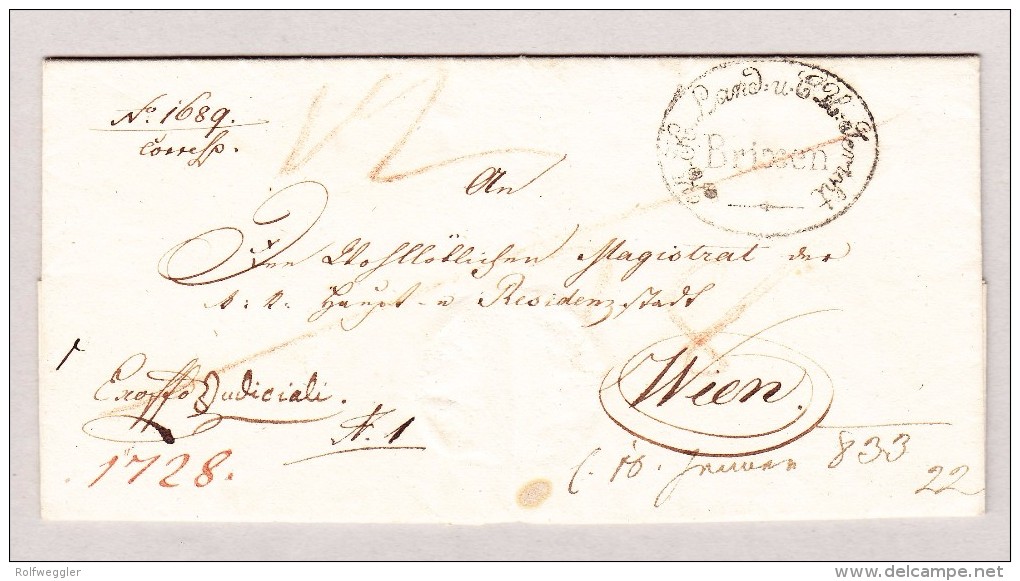 No. 1689.
Corresp.
Land- u. Gericht
Brixen
An
Den Wohllöblichen Magistrat der
k: k: Haupt- u Residenzstadt
Wien.
Exoffo Judiciali.
N. 1
1728.
10. Jenner 833
22
Rolfweggler
www.delcampe.net